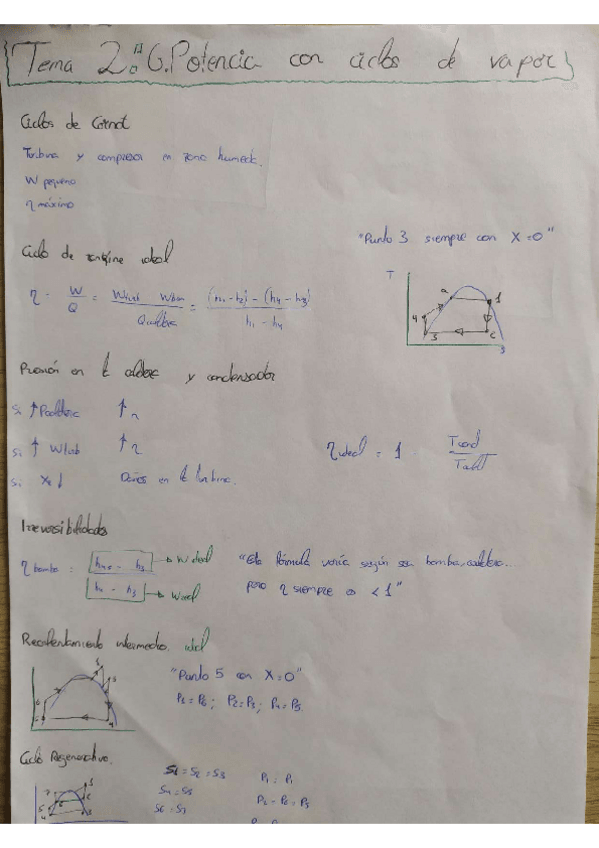 Tema 2: G.Potencia con ciclos de vapor
Ciclos de Carnot
Turbina y compresor en zona humeda.
W pequeno
η máximo
Ciclo de rankine ideal
"Punto 3 siempre con X=0"
η = W/Q = Wturb Wbom / Qcaldera = (h1 - h2) - (h4 - h3) / h1 - h4
T
a
1
4
3
2
S
Presión en la caldera y condensador
Si ↑ Pcaldera ↑ η
Si ↑ Wturb ↑ η
Si X2 ↓ Daños en la turbina.
ηideal = 1 - Tcond / TalT
Irreversibilidades
η bomba = h4s - h3 → W ideal
h4 - h3 → W real
"Esta fórmula varía según sea bomba, caldera...
pero η siempre es < 1"
Recalentamiento intermedio ideal
"Punto 5 con X=0"
P1 = P6; P2 = P3; P4 = P5
Ciclo Regenerativo.
S1 = S2 = S3
S4 = S5
S6 = S7